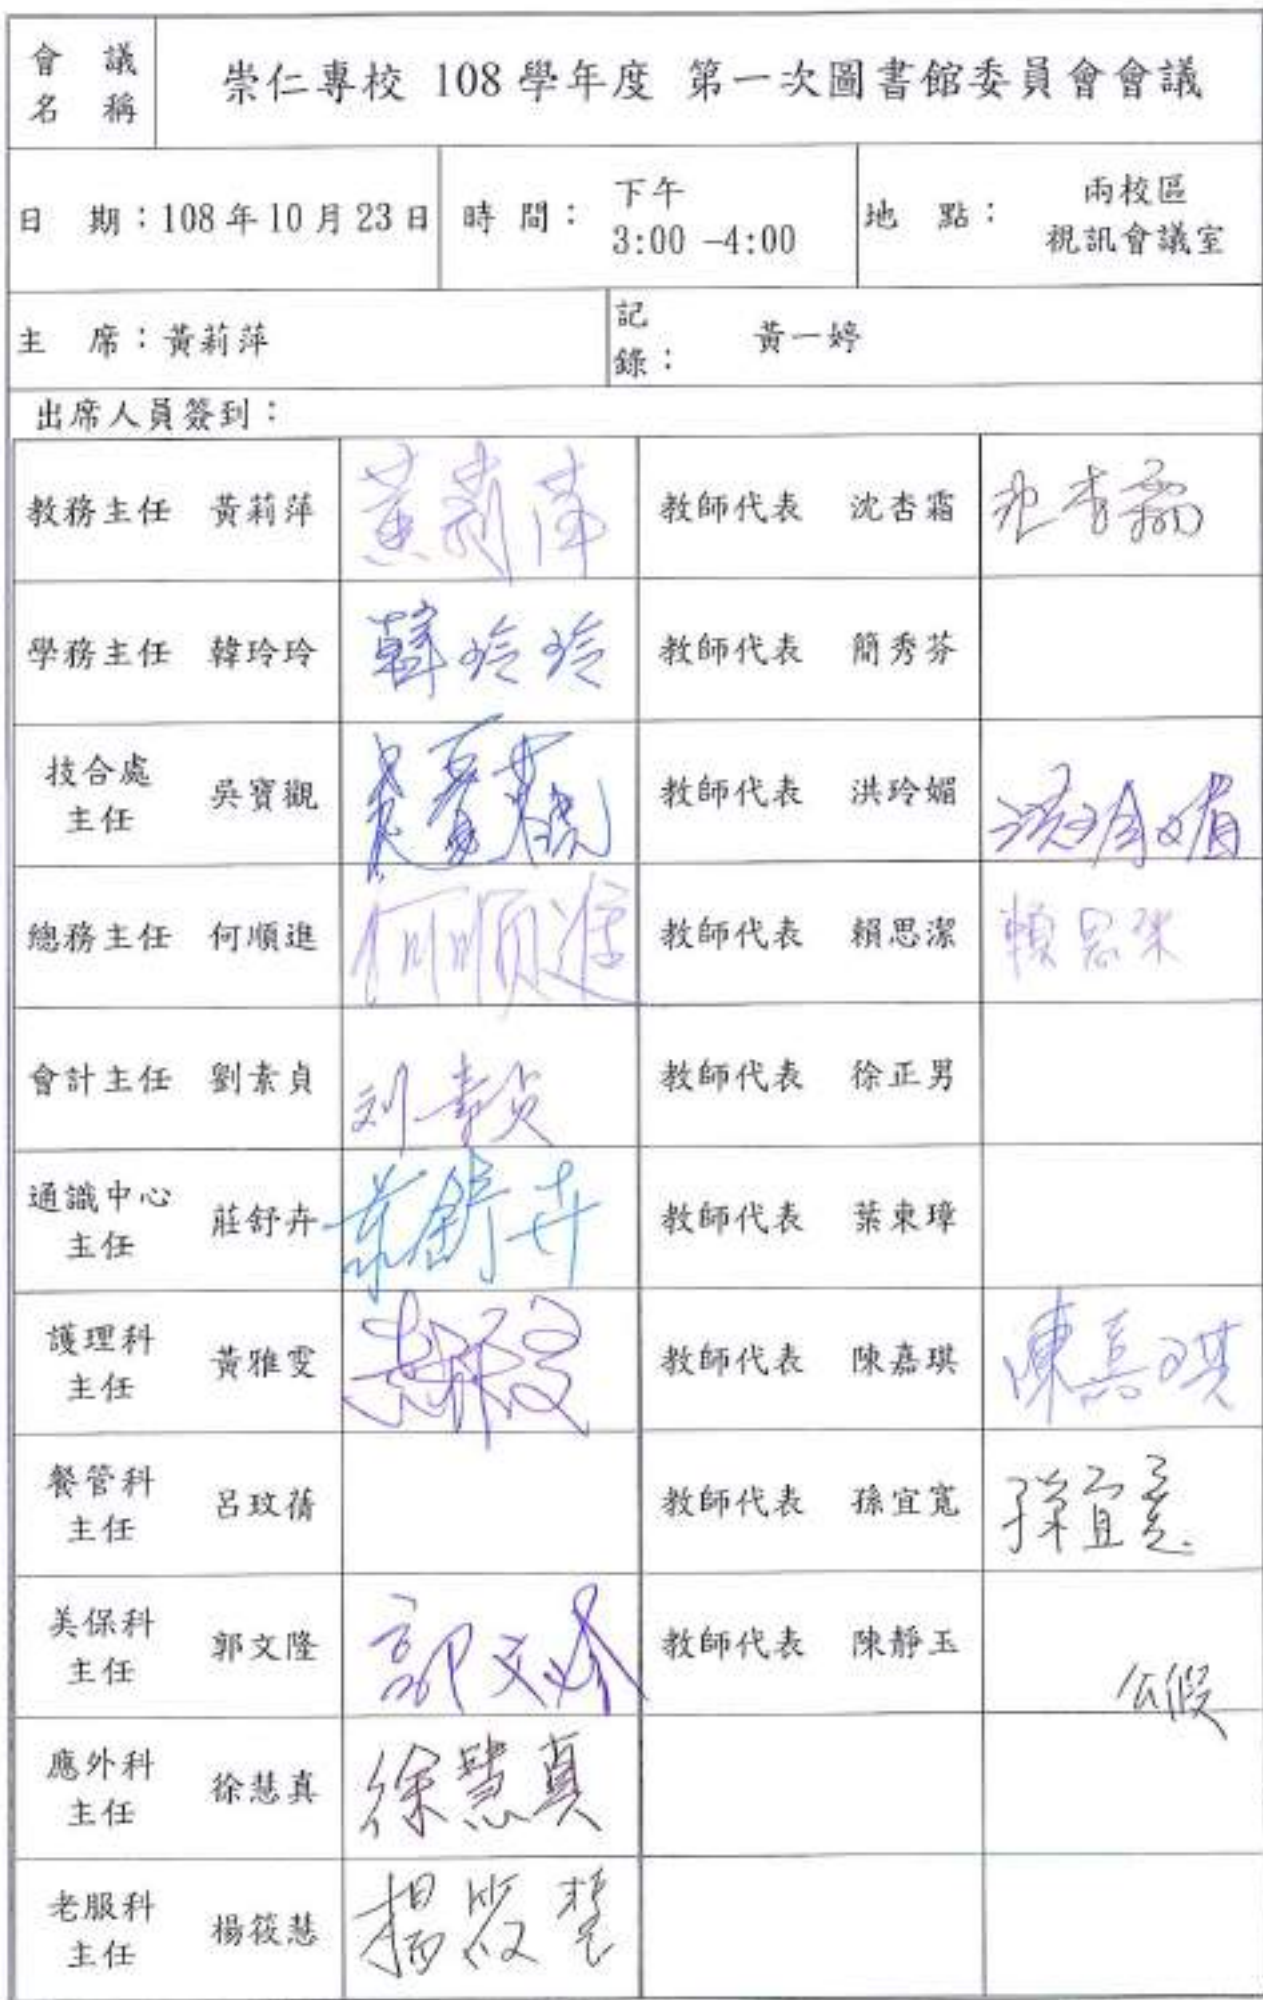 會議名稱
崇仁專校 108 學年度 第一次圖書館委員會會議
日 期：108 年 10 月 23 日
時 間：
下午
3:00 –4:00
地 點：
兩校區
視訊會議室
主 席：黃莉萍
記錄：
黃一婷
出席人員簽到：
教務主任 黃莉萍 黃莉萍 教師代表 沈杏霜 沈杏霜
學務主任 韓玲玲 韓玲玲 教師代表 簡秀芬
技合處主任 吳寶觀 吳寶觀 教師代表 洪玲媚 洪玲媚
總務主任 何順進 何順進 教師代表 賴思潔 賴思潔
會計主任 劉素貞 刘素貞 教師代表 徐正男
通識中心主任 莊舒卉 莊舒卉 教師代表 葉東璋
護理科主任 黃雅雯 黃雅雯 教師代表 陳嘉琪 陳嘉琪
餐管科主任 呂玟蒨 教師代表 孫宜寬 孫宜寬
美保科主任 郭文隆 郭文隆 教師代表 陳靜玉 公假
應外科主任 徐慧真 徐慧真
老服科主任 楊筱慧 楊筱慧